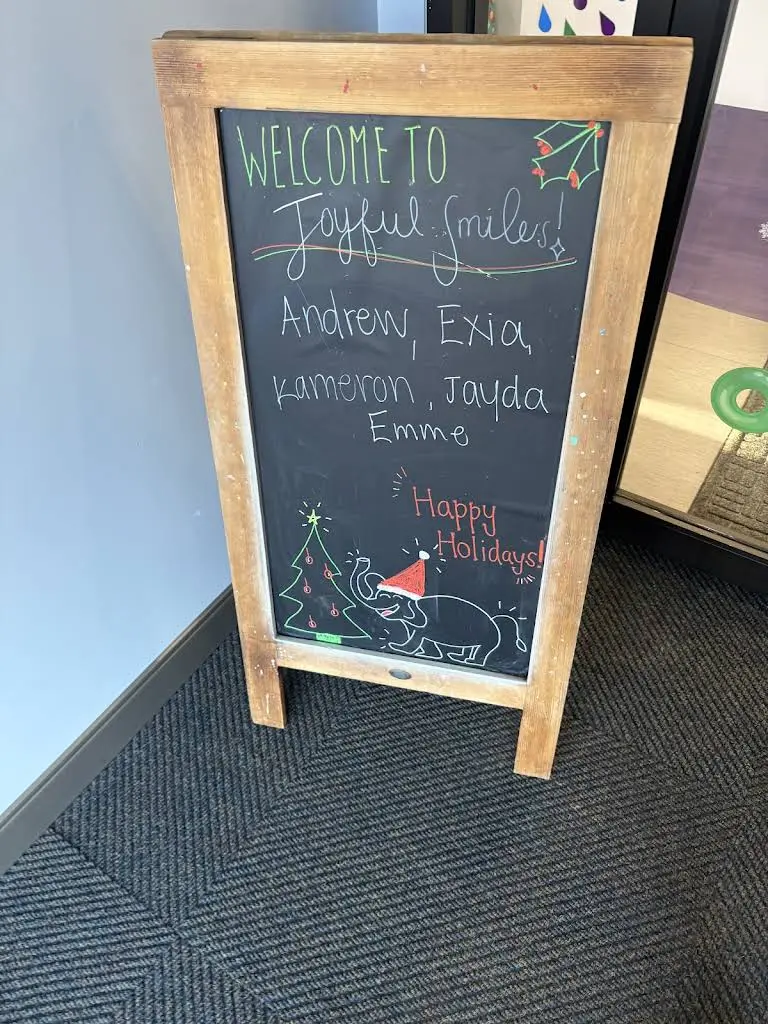 WELCOME TO
Joyful Smiles!
Andrew, Exia,
Kameron, Jayda
Emme
Happy
Holidays!